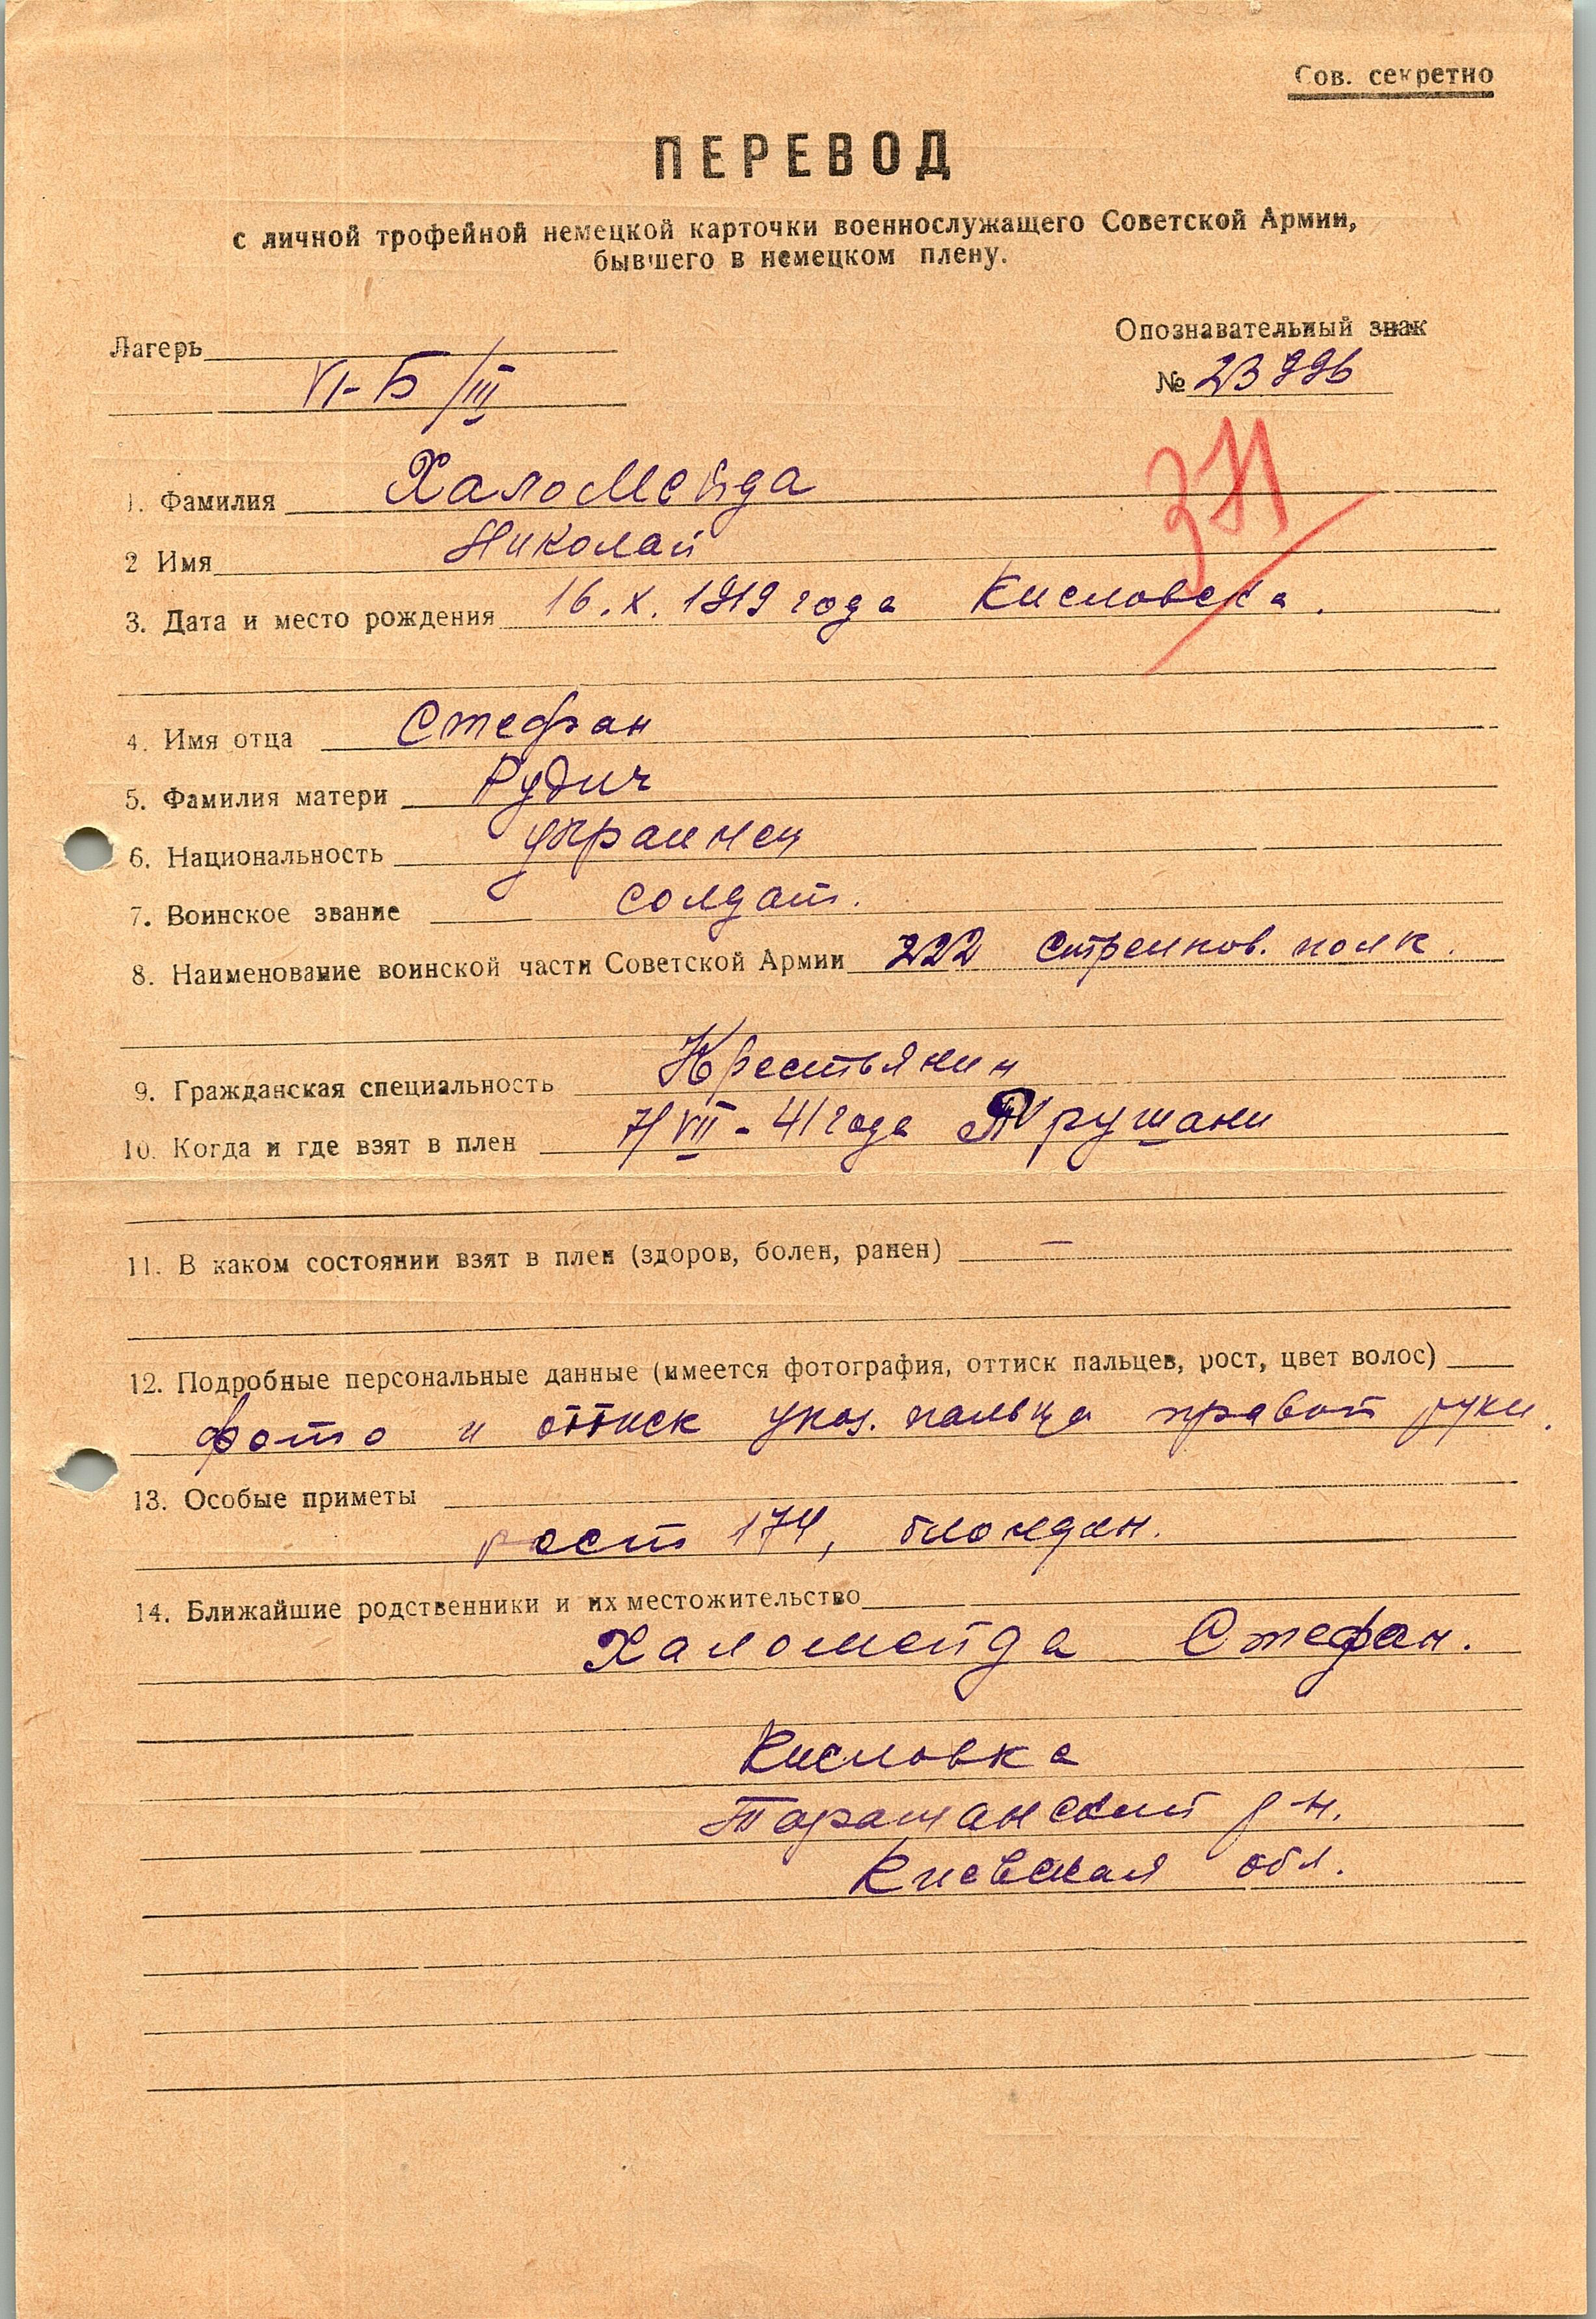 Сов. секретно
ПЕРЕВОД
с личной трофейной немецкой карточки военнослужащего Советской Армии,
бывшего в немецком плену.
Лагерь
VI-Б/III
Опознавательный знак
№ 23996
371
1. Фамилия Халомейда
2 Имя Николай
3. Дата и место рождения 16.X.1919 года Кисловка.
4. Имя отца Стефан
5. Фамилия матери Рудич
6. Национальность украинец
7. Воинское звание солдат.
8. Наименование воинской части Советской Армии 222 стрелков. полк.
9. Гражданская специальность Крестьянин
10. Когда и где взят в плен 7/VII-41 года
11. В каком состоянии взят в плен (здоров, болен, ранен) —
12. Подробные персональные данные (имеется фотография, оттиск пальцев, рост, цвет волос)
фото и оттиск указ. пальца правой руки.
13. Особые приметы
рост 174, блондин.
14. Ближайшие родственники и их местожительство
Халомейда Стефан.
Кисловка
Таращанский р-н.
Киевская обл.